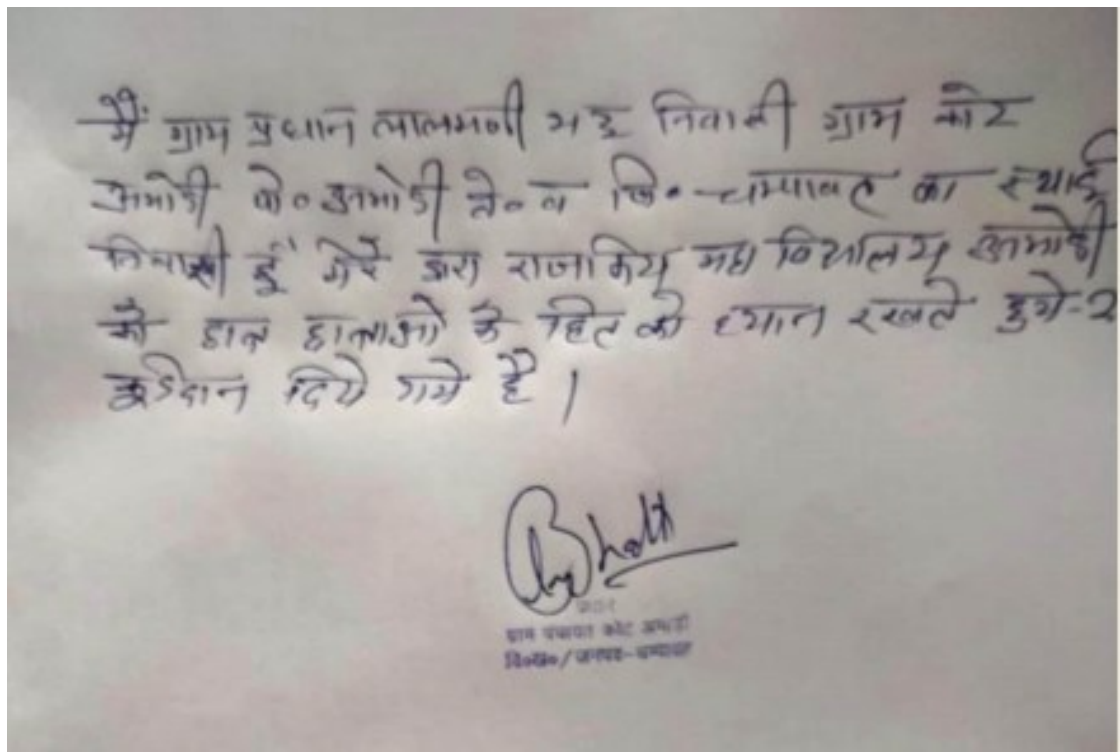 मैं ग्राम प्रधान लालमणी भट्ट निवासी ग्राम कोट
अमोडी पो० अमोडी ते० व जि० चम्पावत का स्थाई
निवासी हूँ मेरे द्वारा राजकिय महा विद्यालय अमोडी
को छात्र छात्राओ के हित को ध्यान रखते हुये-2
कूडेदान दिये गये है ।
Bhatt
प्रधान
ग्राम पंचायत कोट अमोडी
वि०ख०/जनपद-चम्पावत